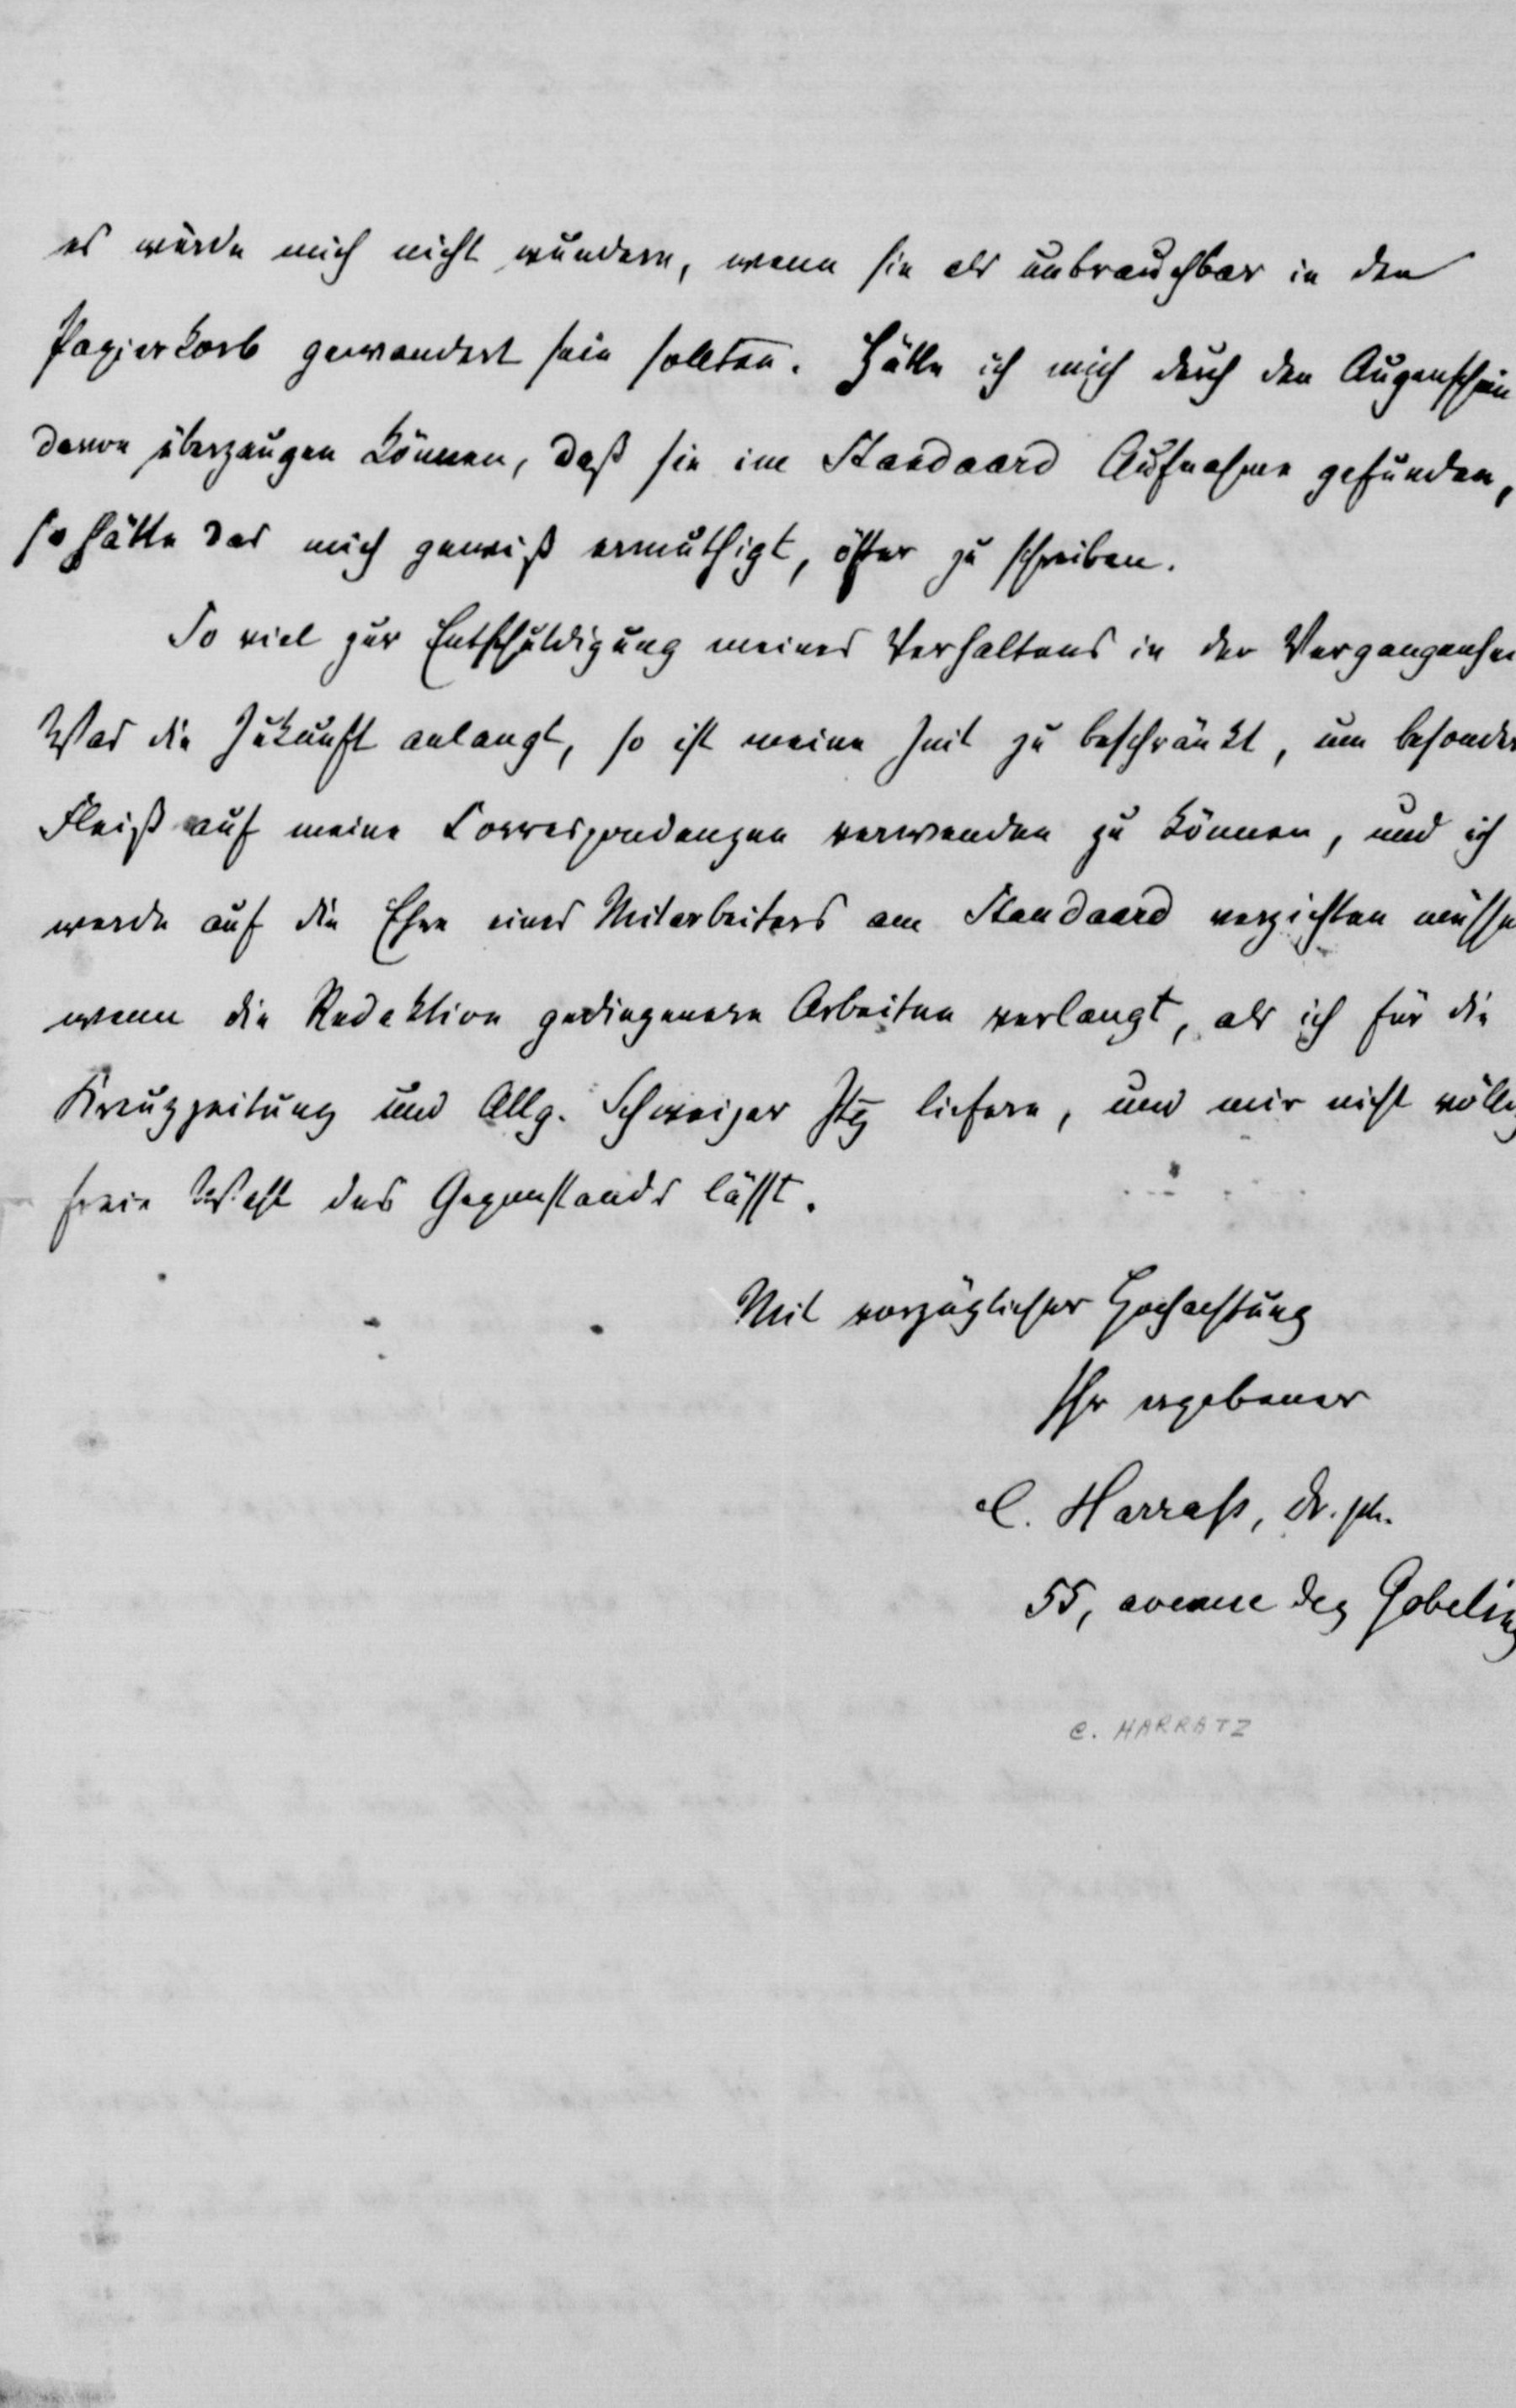 es würde mich nicht wundern, wenn sie als unbrauchbar in den
Papierkorb gewandert sein sollten. Hätte ich mich durch den Augenschein
davon überzeugen können, daß sie im Standaard Aufnahme gefunden,
so hätte das mich gewiß ermuthigt, öfter zu schreiben.
So viel zur Entschuldigung meines Verhaltens in der Vergangenhei
Was die Zukunft anlangt, so ist meine Zeit zu beschränkt, um besonder
Fleiß auf meine Correspondenzen verwenden zu können, und ich
werde auf die Ehre eines Mitarbeiters am Standaard verzichten müsse
wenn die Redaktion gediegenere Arbeiten verlangt, als ich für die
Kreuzzeitung und Allg. Schweizer Ztg liefere, und mir nicht völlig
freie Wahl des Gegenstands läßt.
Mit vorzüglicher Hochachtung
Ihr ergebener
C. Harraß, Dr. ph.
55, avenue des Gobelins
C. HARRATZ